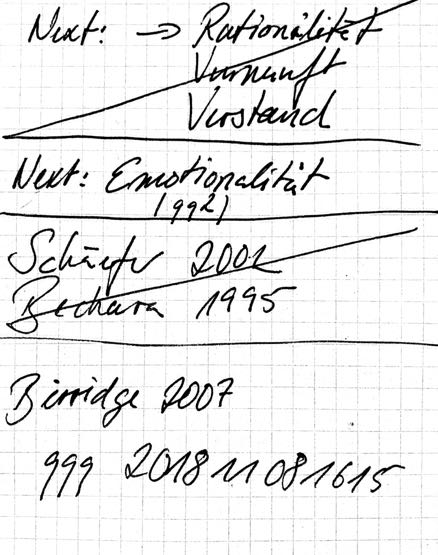 Next: → Rationalität
Vernunft
Verstand
Next: Emotionalität
1992)
Schäfer 2002
Bechara 1995
Berridge 2007
999 201811081615